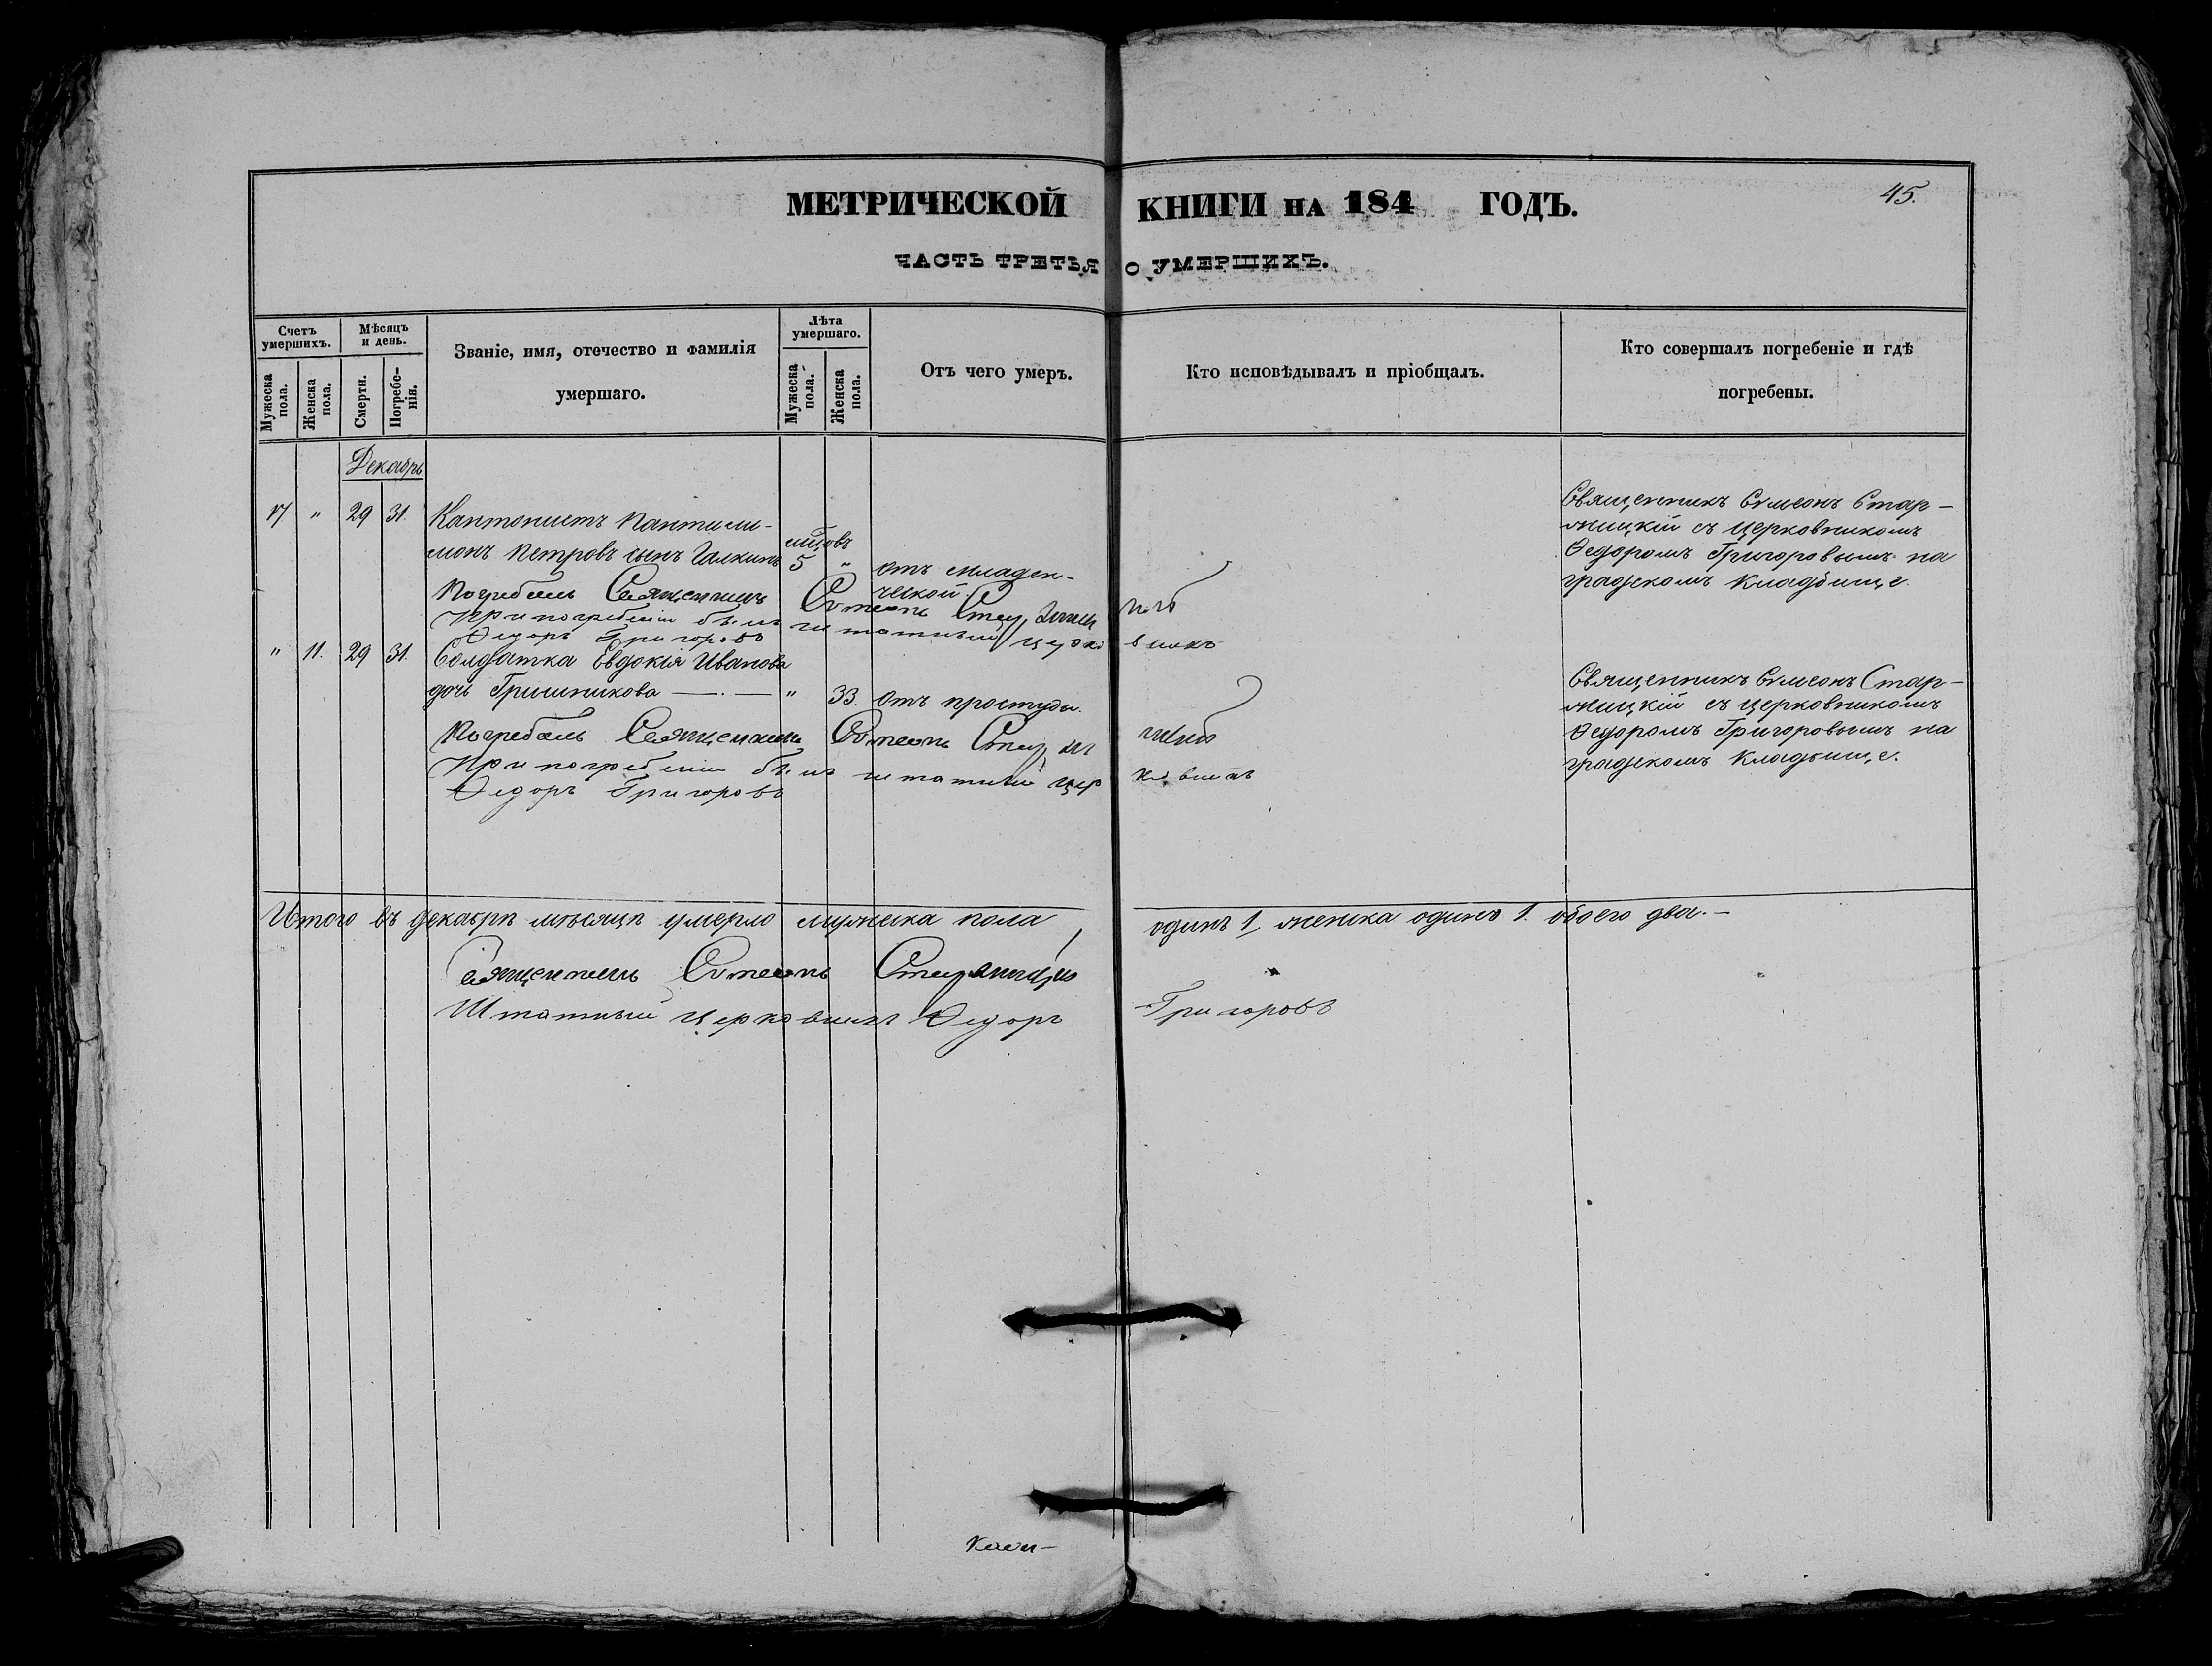 МЕТРИЧЕСКОЙ КНИГИ НА 184 ГОДЪ.
45.
ЧАСТЬ ТРЕТЬЯ О УМЕРШИХЪ.
Счетъ умершихъ.
Мужеска пола.
Женска пола.
Мѣсяцъ и день.
Смерти.
Погребенія.
Званіе, имя, отечество и фамилія
умершаго.
Лѣта умершаго.
Мужеска пола.
Женска пола.
Отъ чего умеръ.
Кто исповѣдывалъ и пріобщалъ.
Кто совершалъ погребеніе и гдѣ
погребены.
Декабрь
17 " 29 31. Кантонистъ Пантили-
монъ Петровъ сынъ Галкинъ 5 мцовъ " отъ младен-
ческой.
Священникъ Симеонъ Стар-
жицкій съ церковникомъ
Ѳедоромъ Григоровымъ на
градскомъ кладбище.
Погребалъ Священникъ Симеонъ
При погребеніи былъ штатный церковникъ
Ѳедоръ Григоровъ
" 11. 29 31. Солдатка Евдокія Иванова
дочь Гришникова " 33. отъ простуды.
Священникъ Симеонъ Стар-
жицкій съ церковникомъ
Ѳедоромъ Григоровымъ на
градскомъ кладбище.
Погребалъ Священникъ Симеонъ
При погребеніи былъ штатный церковникъ
Ѳедоръ Григоровъ
Итого въ декабрѣ мѣсяцѣ умерло мужеска пола одинъ 1, женска одинъ 1. обоего два.—
Священникъ Симеонъ Старжицкій
Штатный церковникъ Ѳедоръ Григоровъ